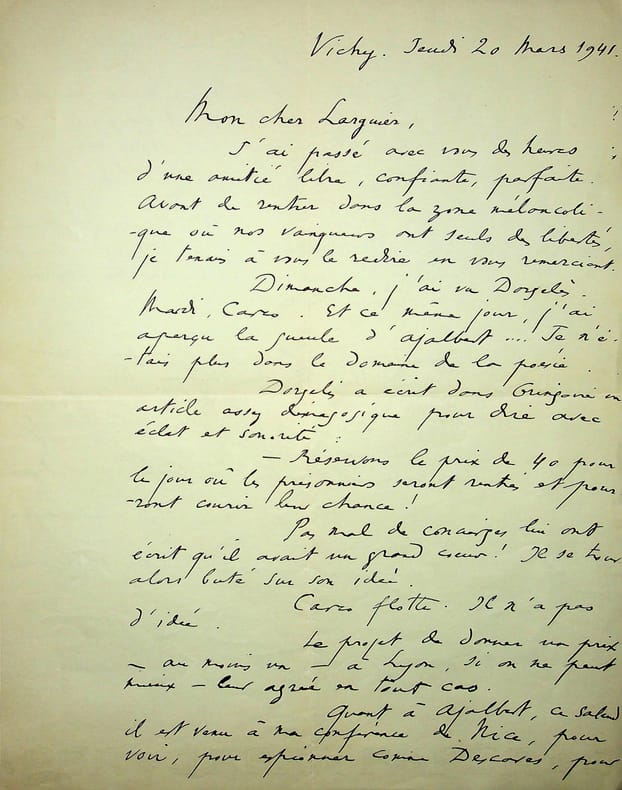 Vichy. Jeudi 20 Mars 1941.
Mon cher Larguier,
J'ai passé avec vous des heures
d'une amitié libre, confiante, parfaite.
Avant de rentrer dans la zone mélancoli-
-que où nos vainqueurs ont seuls des libertés,
je tenais à vous le redire en vous remerciant.
Dimanche, j'ai vu Dorgelès.
Mardi, Carco. Et ce même jour, j'ai
aperçu la gueule d'Ajalbert.... Je n'é-
-tais plus dans le domaine de la poésie.
Dorgelès a écrit dans Gringoire un
article assez démagogique pour dire avec
éclat et sonorité :
— Réservons le prix de 40 pour
le jour où les prisonniers seront rentrés et pour-
-ront courir leur chance !
Pas mal de concierges lui ont
écrit qu'il avait un grand cœur ! Il se trouve
alors buté sur son idée.
Carco flotte. Il n'a pas
d'idée.
Le projet de donner un prix
— au moins un — à Lyon, si on ne peut
mieux — leur agrée en tout cas.
Quant à Ajalbert, ce salaud
il est venu à ma conférence de Nice, pour
voir, pour espionner comme Descaves, pour